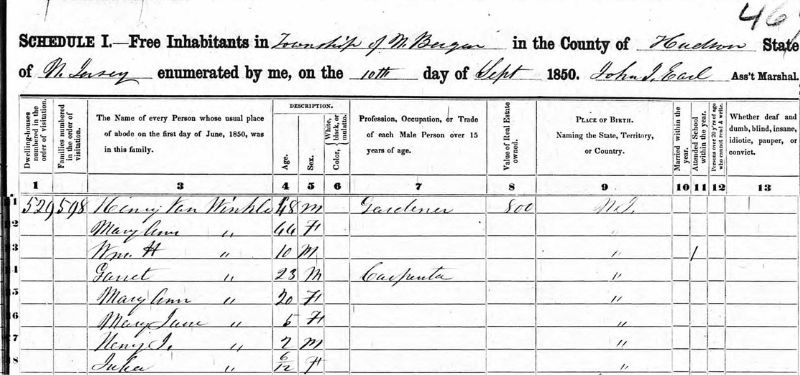 46
SCHEDULE I.—Free Inhabitants in Township of N. Bergen in the County of Hudson State
of N. Jersey enumerated by me, on the 10th day of Sept 1850. John J. Earl Ass't Marshal.
Dwelling-houses numbered in the order of visitation. Families numbered in the order of visitation. The Name of every Person whose usual place of abode on the first day of June, 1850, was in this family. DESCRIPTION. Age. Sex. Color, White, black, or mulatto. Profession, Occupation, or Trade of each Male Person over 15 years of age. Value of Real Estate owned. PLACE OF BIRTH. Naming the State, Territory, or Country. Married within the year. Attended School within the year. Persons over 20 y'rs of age who cannot read & write. Whether deaf and dumb, blind, insane, idiotic, pauper, or convict.
1 2 3 4 5 6 7 8 9 10 11 12 13
1 529 598 Henry Van Winkle 48 M Gardener 800 N.J.
2 Mary Ann " 44 F "
3 Wm H " 10 M " /
4 Garret " 23 M Carpenter "
5 Mary Ann " 20 F "
6 Mary Jane " 5 F "
7 Henry J. " 2 M "
8 " 6/12 F "